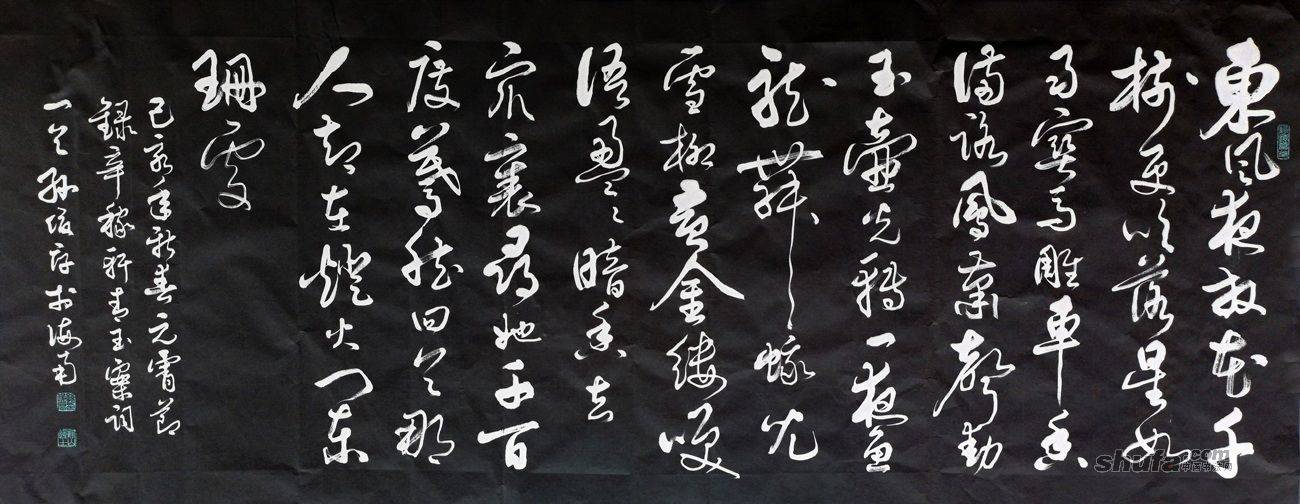 東风夜放花千
樹更吹落星如
雨寶馬雕車香
滿路鳳簫聲動
玉壺光轉一夜魚
龍舞蛾兒
雪柳黄金縷笑
語盈〻暗香去
眾裏尋她千百
度驀然回首那
人却在燈火闌
珊處
己亥年新春元宵節
錄辛稼軒青玉案詞
孫 於海南
shufa.com
中国书法网